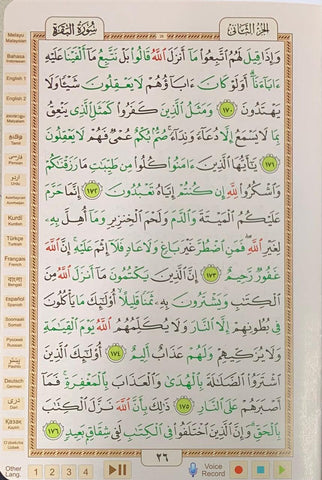 الجزء الثاني
سورة البقرة
وَإِذَا قِيلَ لَهُمُ ٱتَّبِعُوا۟ مَآ أَنزَلَ ٱللَّهُ قَالُوا۟ بَلْ نَتَّبِعُ مَآ أَلْفَيْنَا عَلَيْهِ
ءَابَآءَنَآ ۗ أَوَلَوْ كَانَ ءَابَآؤُهُمْ لَا يَعْقِلُونَ شَيْـًٔا وَلَا
يَهْتَدُونَ ١٧٠ وَمَثَلُ ٱلَّذِينَ كَفَرُوا۟ كَمَثَلِ ٱلَّذِى يَنْعِقُ
بِمَا لَا يَسْمَعُ إِلَّا دُعَآءً وَنِدَآءً ۚ صُمٌّۢ بُكْمٌ عُمْىٌ فَهُمْ لَا يَعْقِلُونَ
١٧١ يَـٰٓأَيُّهَا ٱلَّذِينَ ءَامَنُوا۟ كُلُوا۟ مِن طَيِّبَـٰتِ مَا رَزَقْنَـٰكُمْ
وَٱشْكُرُوا۟ لِلَّهِ إِن كُنتُمْ إِيَّاهُ تَعْبُدُونَ ١٧٢ إِنَّمَا حَرَّمَ
عَلَيْكُمُ ٱلْمَيْتَةَ وَٱلدَّمَ وَلَحْمَ ٱلْخِنزِيرِ وَمَآ أُهِلَّ بِهِۦ
لِغَيْرِ ٱللَّهِ ۖ فَمَنِ ٱضْطُرَّ غَيْرَ بَاغٍ وَلَا عَادٍ فَلَآ إِثْمَ عَلَيْهِ ۚ إِنَّ ٱللَّهَ
غَفُورٌ رَّحِيمٌ ١٧٣ إِنَّ ٱلَّذِينَ يَكْتُمُونَ مَآ أَنزَلَ ٱللَّهُ مِنَ
ٱلْكِتَـٰبِ وَيَشْتَرُونَ بِهِۦ ثَمَنًا قَلِيلًا ۙ أُو۟لَـٰٓئِكَ مَا يَأْكُلُونَ
فِى بُطُونِهِمْ إِلَّا ٱلنَّارَ وَلَا يُكَلِّمُهُمُ ٱللَّهُ يَوْمَ ٱلْقِيَـٰمَةِ
وَلَا يُزَكِّيهِمْ وَلَهُمْ عَذَابٌ أَلِيمٌ ١٧٤ أُو۟لَـٰٓئِكَ ٱلَّذِينَ
ٱشْتَرَوُا۟ ٱلضَّلَـٰلَةَ بِٱلْهُدَىٰ وَٱلْعَذَابَ بِٱلْمَغْفِرَةِ ۚ فَمَآ
أَصْبَرَهُمْ عَلَى ٱلنَّارِ ١٧٥ ذَٰلِكَ بِأَنَّ ٱللَّهَ نَزَّلَ ٱلْكِتَـٰبَ
بِٱلْحَقِّ ۗ وَإِنَّ ٱلَّذِينَ ٱخْتَلَفُوا۟ فِى ٱلْكِتَـٰبِ لَفِى شِقَاقٍۭ بَعِيدٍ ١٧٦
٢٦
Melayu
Malaysian
Bahasa
Indonesia
English 1
English 2
Malayalam
தமிழ்
Tamil
فارسی
Persian
اردو
Urdu
Kurdi
Kurdish
Türkçe
Turkish
Français
French
বাংলা
Bengali
Español
Spanish
Soomaali
Somali
Русский
Russian
پښتو
Pashto
Deutsch
German
دری
Dari
Қазақ
Kazakh
O'zbekcha
Uzbek
Other
Lang.
1 2 3 4
Voice
Record